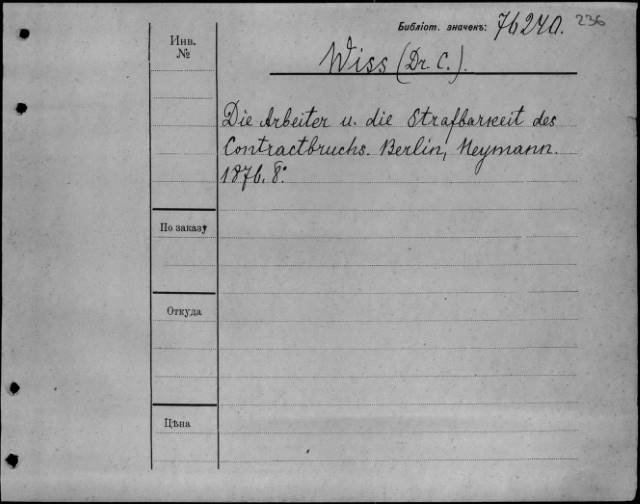 Библіот. значекъ: 76240. 236
Инв.
№
Wiss (Dr. C.).
Die Arbeiter u. die Strafbarkeit des
Contractbruchs. Berlin, Heymann.
1876. 8°.
По заказу
Откуда
Цѣна